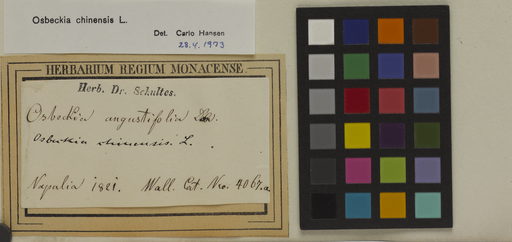 Osbeckia chinensis L.
Det. Carlo Hansen
28.4.1973
HERBARIUM REGIUM MONACENSE
Herb. Dr. Schultes.
Osbeckia angustifolia
Osbeckia chinensis. L.
Napalia 1821. Wall. Cat. Nro. 4067.a